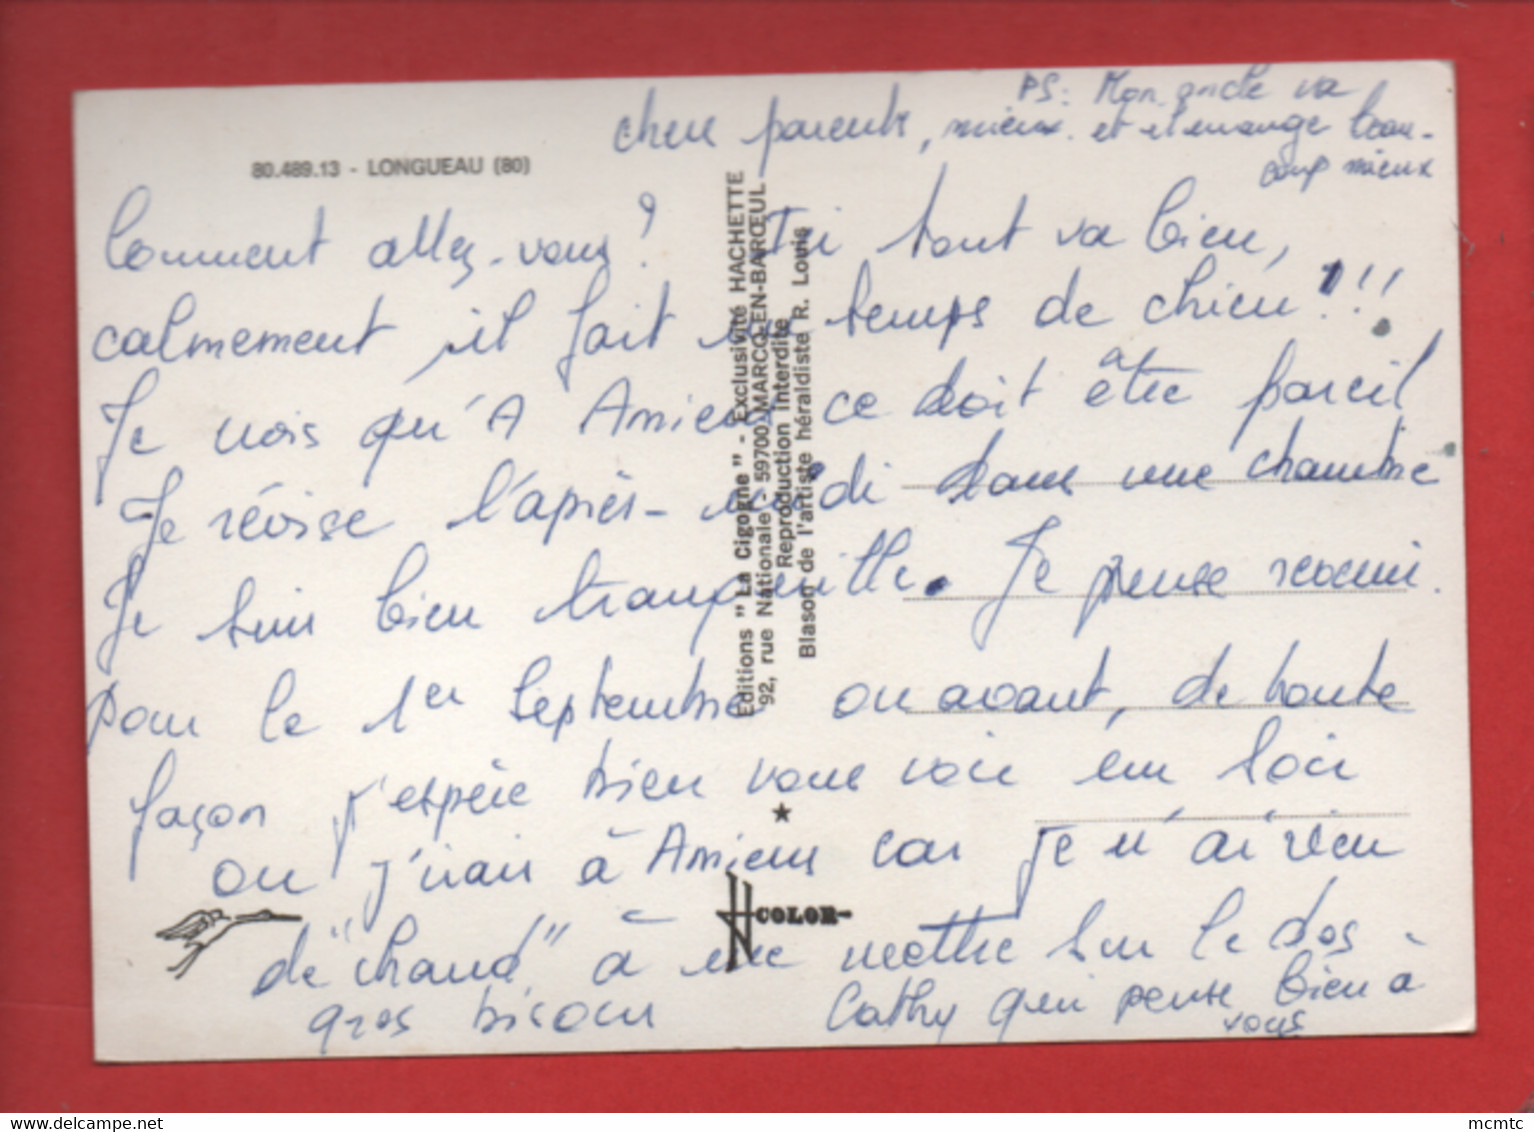 80.489.13 - LONGUEAU (80)
chers parents,
PS: Mon oncle va
mieux. et il mange beau-
coup mieux
Comment allez-vous? Ici tout va bien,
calmement il fait un temps de chien!!!
Je vois qu'A Amiens ce doit être pareil
Je révise l'après-midi dans une chambre
Je suis bien tranquille. Je pense revenir
pour le 1er Septembre ou avant, de toute
façon j'espère bien vous voir un soir
ou j'irai à Amiens car je n'ai rien
de "chaud" à me mettre sur le dos.
gros bisous
Cathy qui pense bien à
vous
Editions "La Cigogne" - Exclusivité HACHETTE
92, rue Nationale - 59700 MARCQ-EN-BARŒUL
Reproduction interdite
Blason de l'artiste héraldiste R. Louis
COLOR
mcmtc